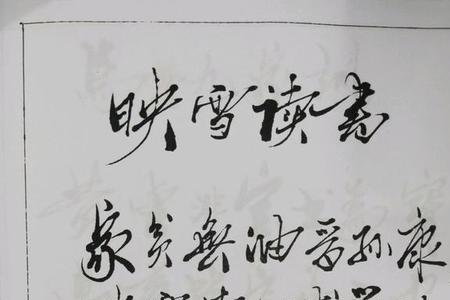 映雪读书
家贫無油晋孙康